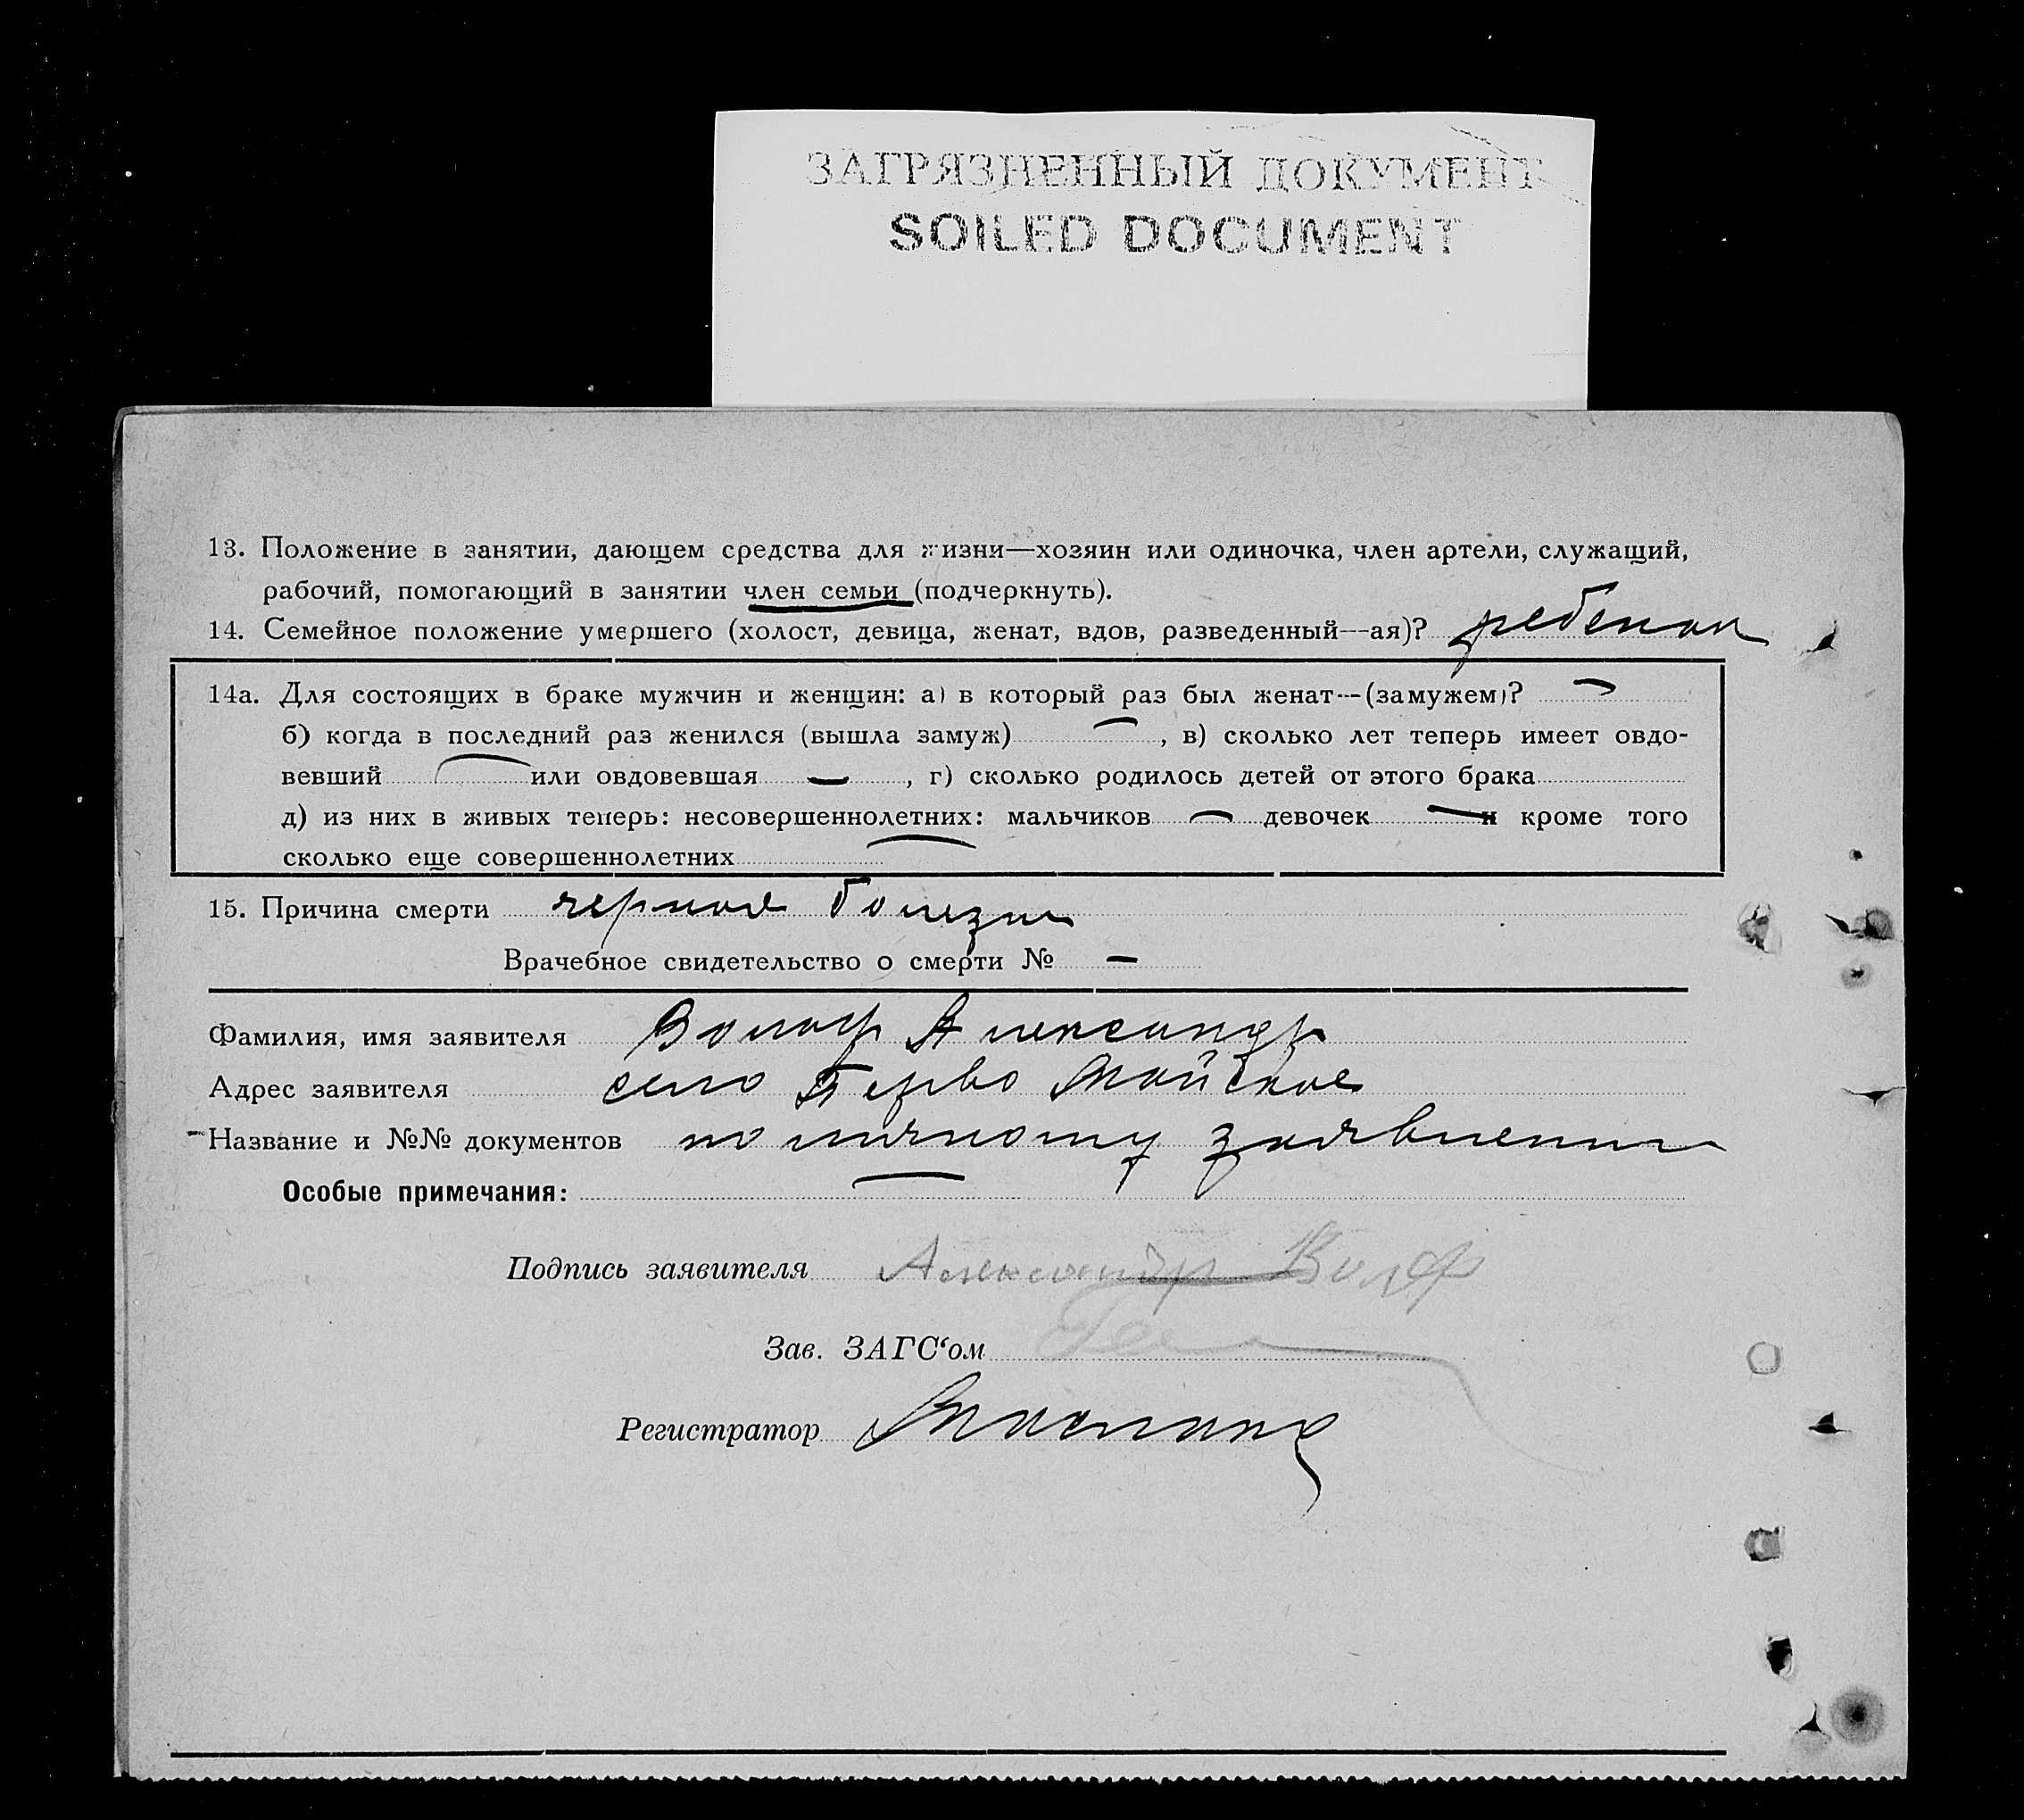 ЗАГРЯЗНЕННЫЙ ДОКУМЕНТ
SOILED DOCUMENT
13. Положение в занятии, дающем средства для жизни—хозяин или одиночка, член артели, служащий,
рабочий, помогающий в занятии член семьи (подчеркнуть).
14. Семейное положение умершего (холост, девица, женат, вдов, разведенный—ая)? ребенок
14а. Для состоящих в браке мужчин и женщин: а) в который раз был женат—(замужем)? —
б) когда в последний раз женился (вышла замуж) —, в) сколько лет теперь имеет овдо-
вевший — или овдовевшая —, г) сколько родилось детей от этого брака
д) из них в живых теперь: несовершеннолетних: мальчиков — девочек — и кроме того
сколько еще совершеннолетних —
15. Причина смерти черная болезнь
Врачебное свидетельство о смерти № —
Фамилия, имя заявителя Вольф Александр
Адрес заявителя село Перво Майское
Название и №№ документов по личному заявлению
Особые примечания: —
Подпись заявителя Александр Волф
Зав. ЗАГС‘ом
Регистратор